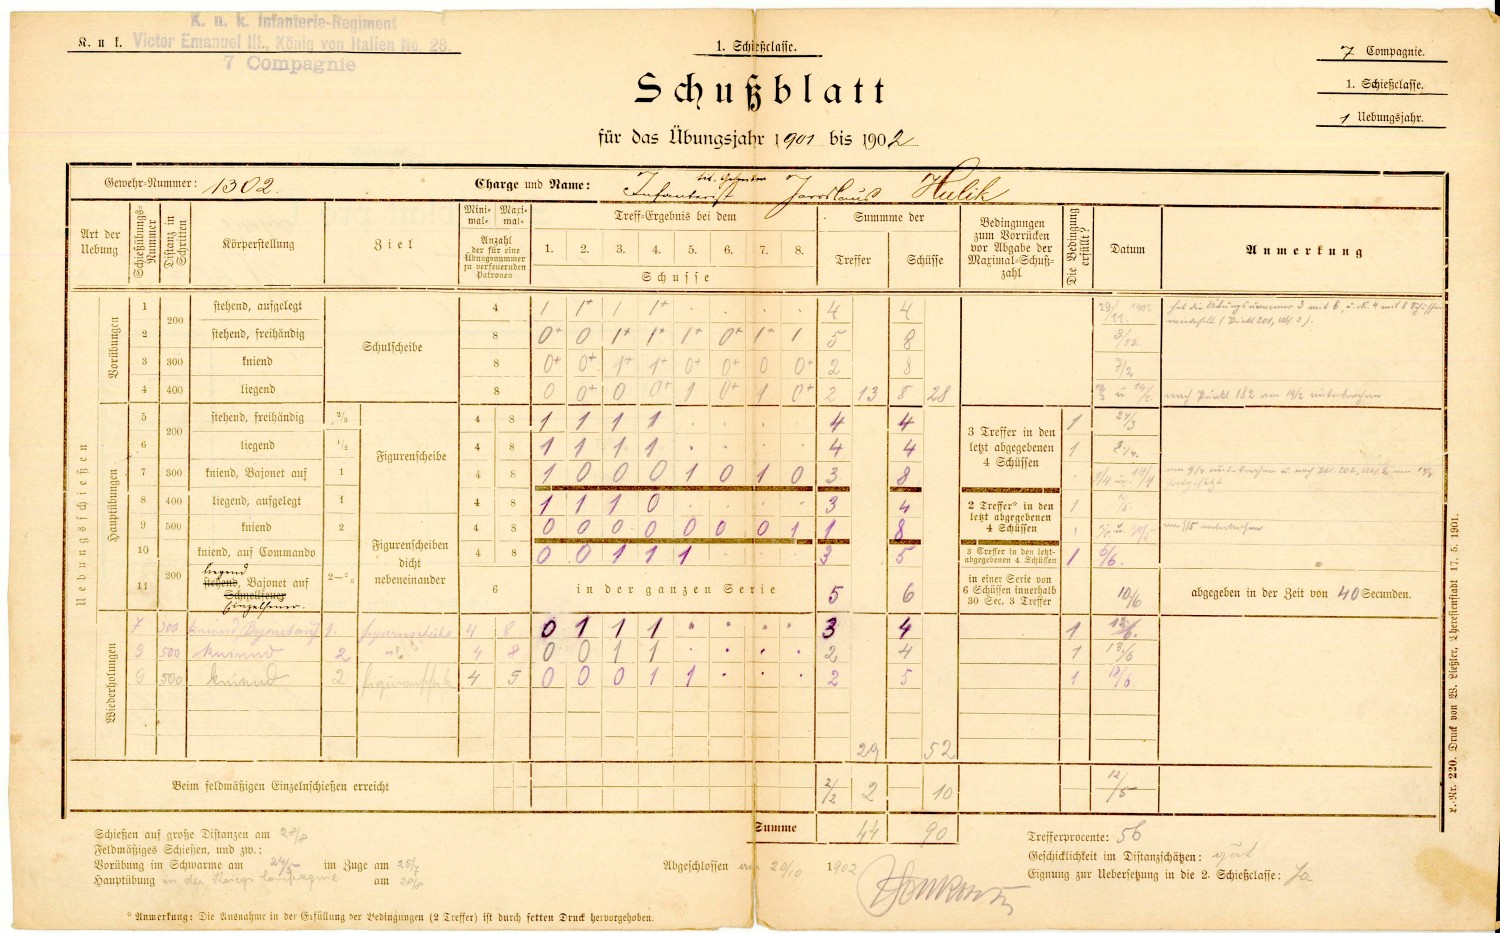 K. u. k. Infanterie-Regiment
K. u. k. Victor Emanuel III., König von Italien No. 28.
7 Compagnie
1. Schießclasse.
7 Compagnie.
1. Schießclasse.
1 Uebungsjahr.
Schußblatt
für das Übungsjahr 1901 bis 1902
Gewehr-Nummer: 1302. Charge und Name: Infanterist Jaroslaus Hulik
Art der Uebung
Schießübungs-Nummer
Distanz in Schritten
Körperstellung
Ziel
Mini-mal- Maxi-mal-
Anzahl der für eine Übungsnummer zu verfeuernden Patronen
Treff-Ergebnis bei dem
1. 2. 3. 4. 5. 6. 7. 8.
Schusse
Summme der
Treffer Schüsse
Bedingungen zum Vorrücken vor Abgabe der Maximal-Schuß-zahl
Die Bedingung erfüllt?
Datum
Anmerkung
Uebungsschießen
Vorübungen
1 200 stehend, aufgelegt Schulscheibe 4 1 1+ 1 1+ . . . . 4 4
2 stehend, freihändig 8 0+ 0 1+ 1+ 1+ 0+ 1+ 1 5 8 3/12
3 300 kniend 8 0+ 0+ 1+ 1+ 0+ 0+ 0 0+ 2 8 7/2
4 400 liegend 8 0 0+ 0 0+ 1 0+ 1 0+ 2 13 8 28
Hauptübungen
5 200 stehend, freihändig 2/2 Figurenscheibe 4 8 1 1 1 1 . . . . 4 4 3 Treffer in den letzt abgegebenen 4 Schüssen 1 24/3
6 liegend 1/2 4 8 1 1 1 1 . . . . 4 4 1
7 300 kniend, Bajonet auf 1 4 8 1 0 0 0 1 0 1 0 3 8
8 400 liegend, aufgelegt 1 4 8 1 1 1 0 . . . . 3 4 2 Treffer* in den letzt abgegebenen 4 Schüssen 1
9 500 kniend 2 Figurenscheiben dicht nebeneinander 4 8 0 0 0 0 0 0 0 1 1 8
10 200 kniend, auf Commando 4 8 0 0 1 1 1 . . . 3 5 3 Treffer in den letzt-abgegebenen 4 Schüssen 1 6/6.
liegend
11 stehend, Bajonet auf 6 in der ganzen Serie 5 6 in einer Serie von 6 Schüssen innerhalb 30 Sec. 3 Treffer 10/6 abgegeben in der Zeit von 40 Secunden.
Schnellfeuer
Einzelfeuer.
Wiederholungen
7 300 kniend Bajonet auf 1. Figurenscheibe 4 8 0 1 1 1 . . . . 3 4 1 12/6.
9 500 kniend 2 4 8 0 0 1 1 . . . . 2 4 1 13/6
9 500 kniend 2 4 5 0 0 0 1 1 . . . 2 5 1 18/6
29 52
Beim feldmäßigen Einzelnschießen erreicht 2/2 2 10 12/5
Summe 44 90
Schießen auf große Distanzen am 28/8
Feldmäßiges Schießen, und zw.:
Vorübung im Schwarme am 24/5 im Zuge am 25/7
Hauptübung in der Kriegs Compagnie am 28/8
Abgeschlossen am 20/10 1902
Trefferprocente: 56
Geschicklichkeit im Distanzschätzen: gut
Eignung zur Uebersetzung in die 2. Schießclasse: Ja
* Anmerkung: Die Ausnahme in der Erfüllung der Bedingungen (2 Treffer) ist durch fetten Druck hervorgehoben.
L.-Nr. 220. Druck von W. Ließler, Theresienstadt 17. 5. 1901.